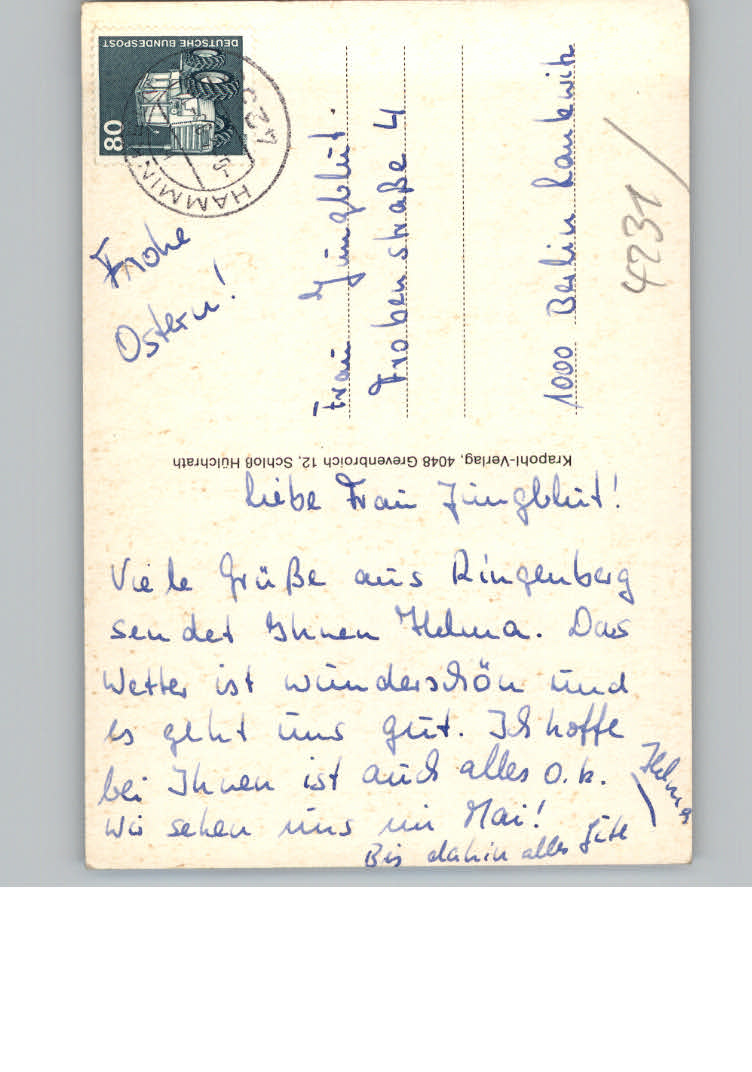 DEUTSCHE BUNDESPOST
80
Frohe
Ostern!
Frau Jüngblut.
Frobenstraße 4
1000 Berlin Lankwitz
4231
Krapohl-Verlag, 4048 Grevenbroich 12, Schloß Hülchrath
Liebe Frau Jüngblut!
Viele Grüße aus Ringenberg
sendet Ihnen Helma. Das
Wetter ist wunderschön und
es geht uns gut. Ich hoffe
bei Ihnen ist auch alles o.k.
Wir sehen uns im Mai!
Bis dahin alles Gute
Helma